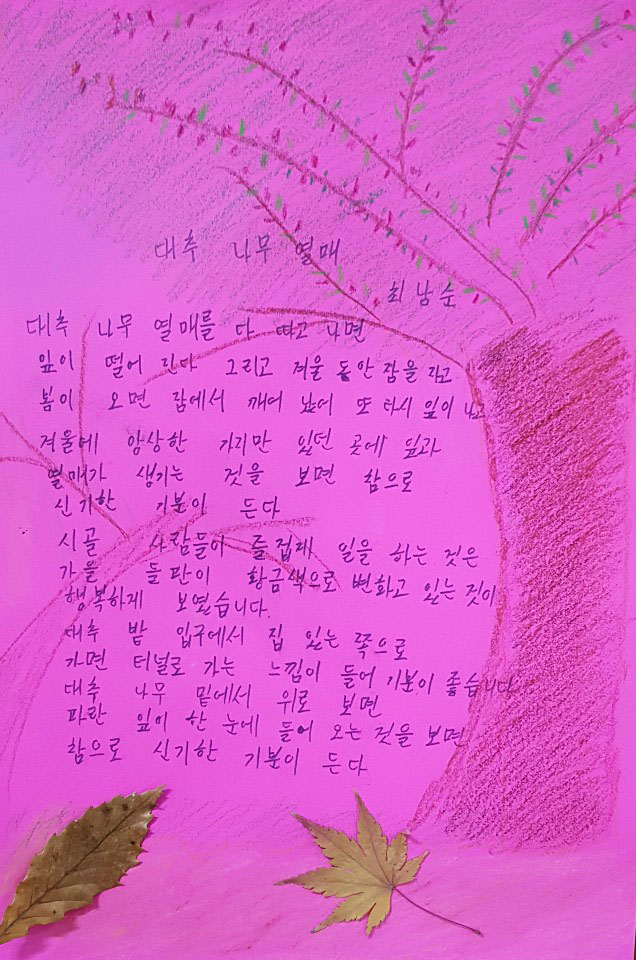 대추 나무 열매
최남순
대추 나무 열매를 다 따고 나면
잎이 떨어 진다 그리고 겨울 동안 잠을 자고
봄이 오면 잠에서 깨어 났어 또 다시 잎이 나고
겨울에 앙상한 가지만 있던 곳에 잎과
열매가 생기는 것을 보면 참으로
신기한 기분이 든다
시골 사람들이 즐겁레 일을 하는 것은
가을 들판이 황금색으로 변화고 있는 것이
행복하게 보였습니다.
대추 밭 입구에서 집 있는 쪽으로
가면 터널로 가는 느낌이 들어 기분이 좋습니다
대추 나무 밑에서 위로 보면
파란 잎이 한 눈에 들어 오는 것을 보면
참으로 신기한 기분이 든다